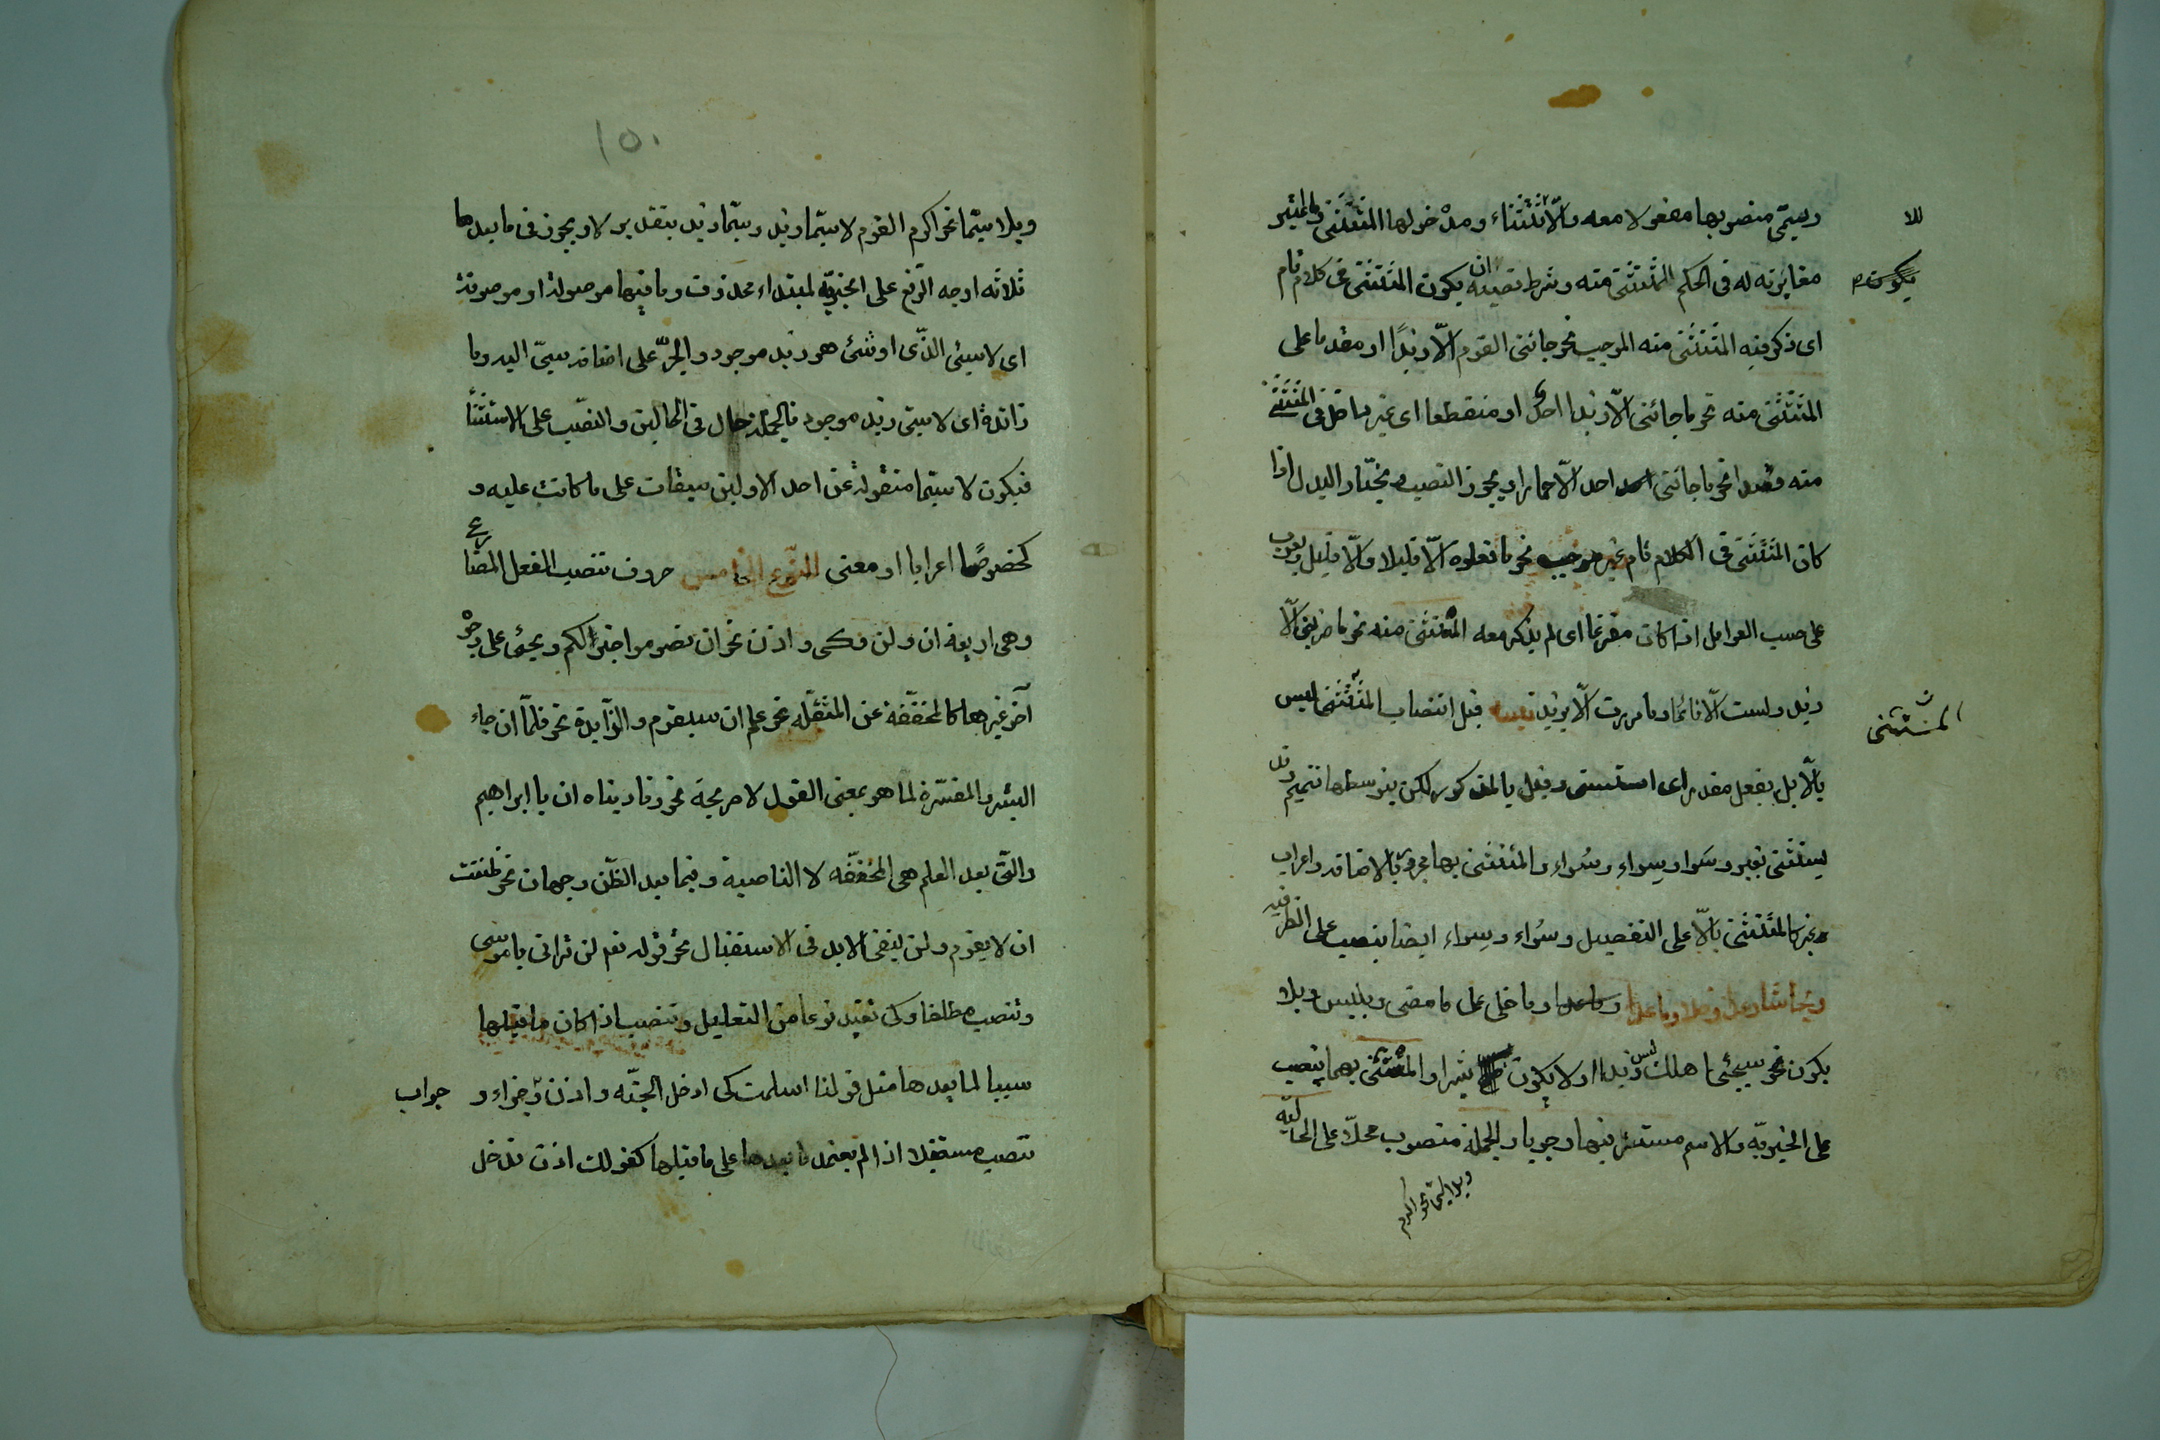 ويسمى منصوبها مفعولا معه والّا للاستثناء ومدخولها المستثنى والمعتبر
للا
مغايرته له فى الحكم المستثنى منه وشرط نصبه ان يكون المستثنى فى كلام تام
يكون
اى ذكر فيه المستثنى منه الموجب نحو جائنى القوم الّا زيدًا او مقدما على
المستثنى منه نحو ما جائنى الّا زيدا احد او منقطعا اى غير داخل فى المستثنى
منه قصدا نحو ما جائنى احد الّا حمارا ويجوز النصب ويختار البدل اذا
كان المستثنى فى الكلام تام غير موجب نحو ما فعلوه الّا قليلا والّا قليل ويعرب
على حسب العوامل اذا كان مفرغا اى لم يذكر معه المستثنى منه نحو ما ضربنى الّا
زيد ولست الّا قائما وما مررت الّا بزيد تنبيه قيل انتصاب المستثنى ليس
المستثنى
بالّا بل بفعل مقدر اى استثنى وقيل بالمذكور لكن بتوسطها تتميم وقد
يستثنى بغير وسَوا وسِواء وسُواء والمستثنى بها مجرور بالاضافة واعراب
غير كالمستثنى بالّا على التفصيل وسُواء وسِواء ايضا بنصب على الظرفيه
وبحاشا وعدا وخلا وماعدا وماخلى عمل ما مضى وبليس وبلا
يكون نحو سيجئى اهلك ليس زيدا او لا يكون بشرا والمستثنى بهما ينصب
على الخبريّه والاسم مستتر فيها وجوبا والجملة منصوب محلّا على الحاليّه
وبلا سيما نحو اكرم
١٥٠
وبلا سيّما نحو اكرم القوم لا سيّما زيد وسيّما زيد بتقدير لا ويجوز فى ما بعدها
ثلاثه اوجه الرّفع على الخبريّه لمبتداء محذوف وما فيها موصولة او موصوفة
اى لا سيئ الذّى او شئ هو زيد موجود والجرّ على اضافة سىّ اليه وما
زائدة اى لا سيّ زيد موجود فالجملة حال فى الحالين والنصّب على الاستثنأ
فيكون لا سيّما منقولة عن احد الاولين سيقات على ما كانت عليه و
كخصوصًا اعرابا او معنى النّوع الخامس حروف تنصب الفعل المضارع
وهى اربعة ان ولن وكى واذن نحو ان تصوموا خير لكم ويجئ على وجوه
آخر غيرها كالمخففّة عن المثقلّه نحو علم ان سيقوم والزّآيدة نحو فلمّا ان جاء
البشير والمفسّرة لما هو بمعنى القول لا صريحه نحو وناديناه ان يا ابراهيم
والتّى بعد العلم هى المخففّه لا الناصبة وفيما بعد الظّن وجهان نحو ظننت
ان لا يقوم ولن لينفى الابد فى الاستقبال نحو قوله تعم لن ترانى يا موسى
وتنصب مطلقا وكى تفيد نوعا من التعليل وتنصب اذا كان ما قبلها
سببا لما بعدها مثل قولنا اسلمت كى ادخل الجنّه واذن وجزاء و
جواب
تنصب مستقبلا اذا لم يعتمد ما بعدها على ما قبلها كقولك اذن تدخل